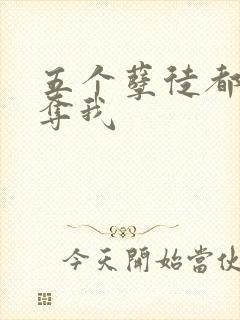 五个孽徒都
夺我
今天開始當伙